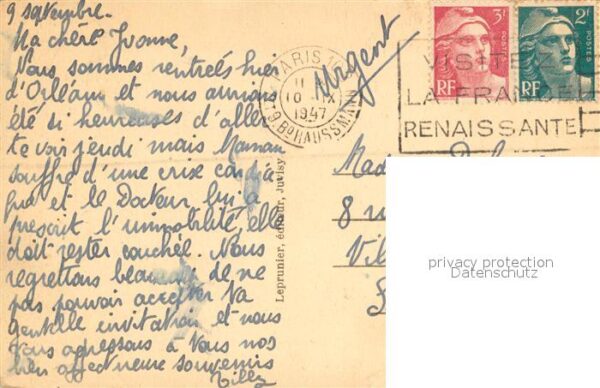 9 septembre.
Ma chère Yvonne,
Nous sommes rentrées hier
d'Orléans et nous aurions
été si heureuses d'aller
te voir jeudi mais Maman
souffre d'une crise cardia
que et le Docteur lui a
prescrit l'immobilité, elle
doit rester couchée. Nous
regrettons beaucoup de ne
pas pouvoir accepter ta
gentille invitation et nous
vous adressons à vous nos
bien affectueux souvenirs
Urgent
PARIS
11
10 IX
1947
Bd HAUSSMANN
3F
2F
POSTES
POSTES
RF
RF
VISITEZ
LA FRANCE
RENAISSANTE
Leprunier, éditeur, Juvisy
8 rue
privacy protection
Datenschutz